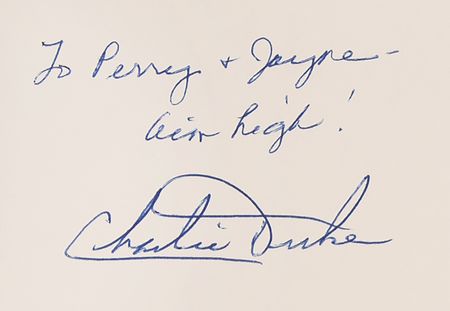 To Perry + Jayne -
Aim high!
Charlie Duke